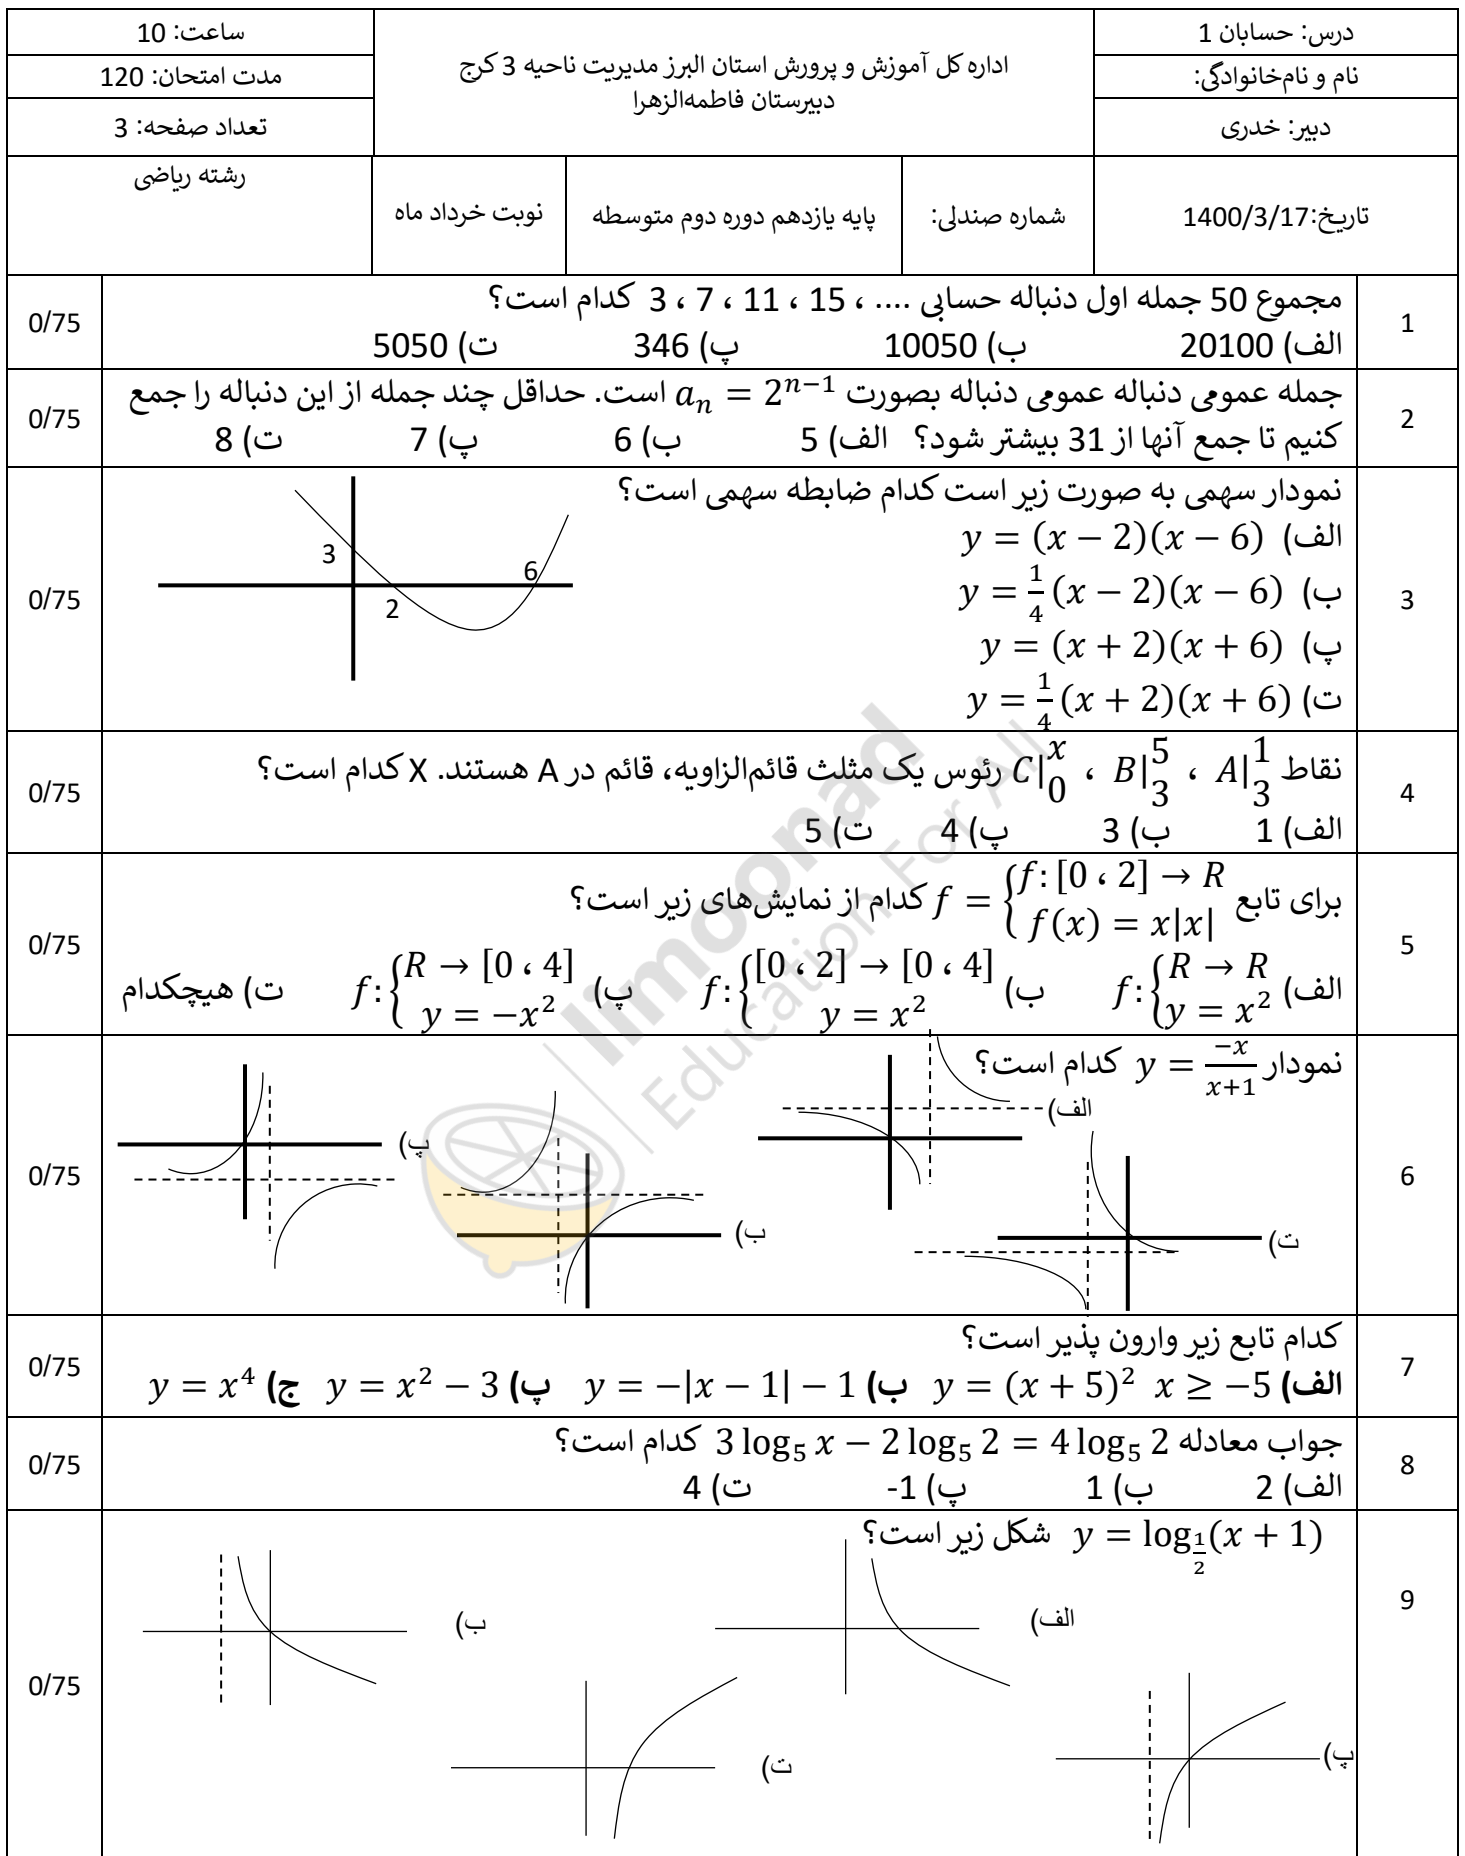 درس: حسابان 1
نام و نام‌خانوادگی:
دبیر: خدری
اداره کل آموزش و پرورش استان البرز مدیریت ناحیه 3 کرج
دبیرستان فاطمه‌الزهرا
ساعت: 10
مدت امتحان: 120
تعداد صفحه: 3
تاریخ:1400/3/17
شماره صندلی:
پایه یازدهم دوره دوم متوسطه
نوبت خرداد ماه
رشته ریاضی
1
مجموع 50 جمله اول دنباله حسابی .... ، 15 ، 11 ، 7 ، 3 کدام است؟
الف) 20100 ب) 10050 پ) 346 ت) 5050
0/75
2
جمله عمومی دنباله عمومی دنباله بصورت a_n = 2^{n-1} است. حداقل چند جمله از این دنباله را جمع
کنیم تا جمع آنها از 31 بیشتر شود؟ الف) 5 ب) 6 پ) 7 ت) 8
0/75
3
نمودار سهمی به صورت زیر است کدام ضابطه سهمی است؟
الف) y = (x − 2)(x − 6)
ب) y = 1/4 (x − 2)(x − 6)
پ) y = (x + 2)(x + 6)
ت) y = 1/4 (x + 2)(x + 6)
3
2
6
0/75
4
نقاط A|1 3 ، B|5 3 ، C|x 0 رئوس یک مثلث قائم‌الزاویه، قائم در A هستند. X کدام است؟
الف) 1 ب) 3 پ) 4 ت) 5
0/75
5
برای تابع f = {f: [0 ، 2] → R f(x) = x|x| کدام از نمایش‌های زیر است؟
الف) f: {R → R y = x² ب) f: {[0 ، 2] → [0 ، 4] y = x² پ) f: {R → [0 ، 4] y = −x² ت) هیچکدام
0/75
6
نمودار y = −x/(x+1) کدام است؟
الف)
پ)
ب)
ت)
0/75
7
کدام تابع زیر وارون پذیر است؟
الف) y = (x + 5)² x ≥ −5 ب) y = −|x − 1| − 1 پ) y = x² − 3 ج) y = x⁴
0/75
8
جواب معادله 3 log₅ x − 2 log₅ 2 = 4 log₅ 2 کدام است؟
الف) 2 ب) 1 پ) 1- ت) 4
0/75
9
y = log_{1/2}(x + 1) شکل زیر است؟
الف)
ب)
پ)
ت)
0/75
limoonad
Education For All